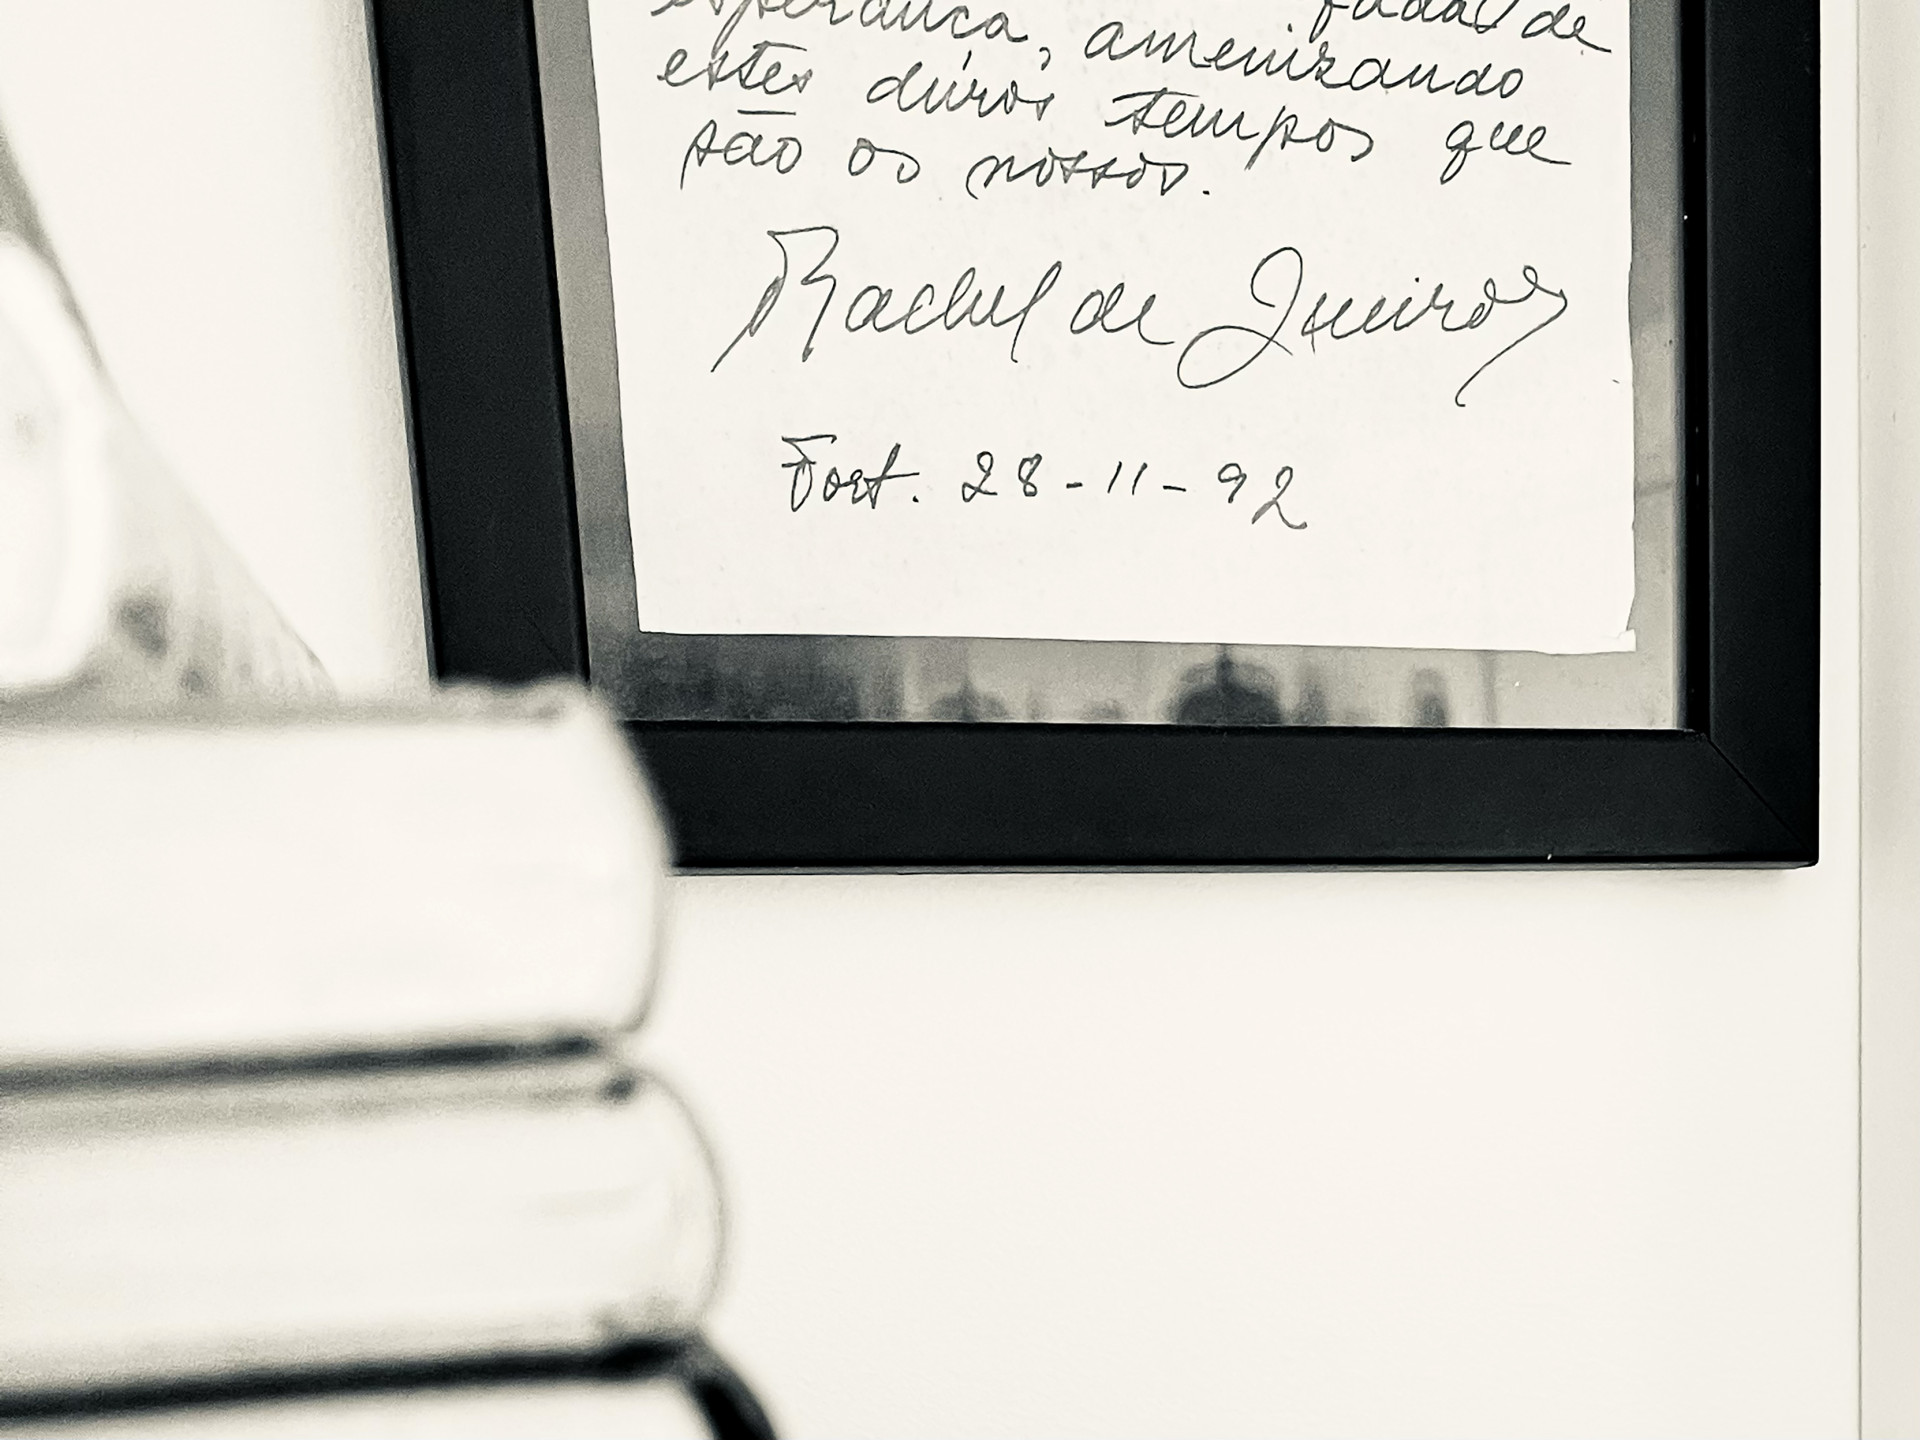 esperança, fadas de
amenizando
estes duros tempos que
são os nossos.
Rachel de Queiroz
Fort. 28-11-92